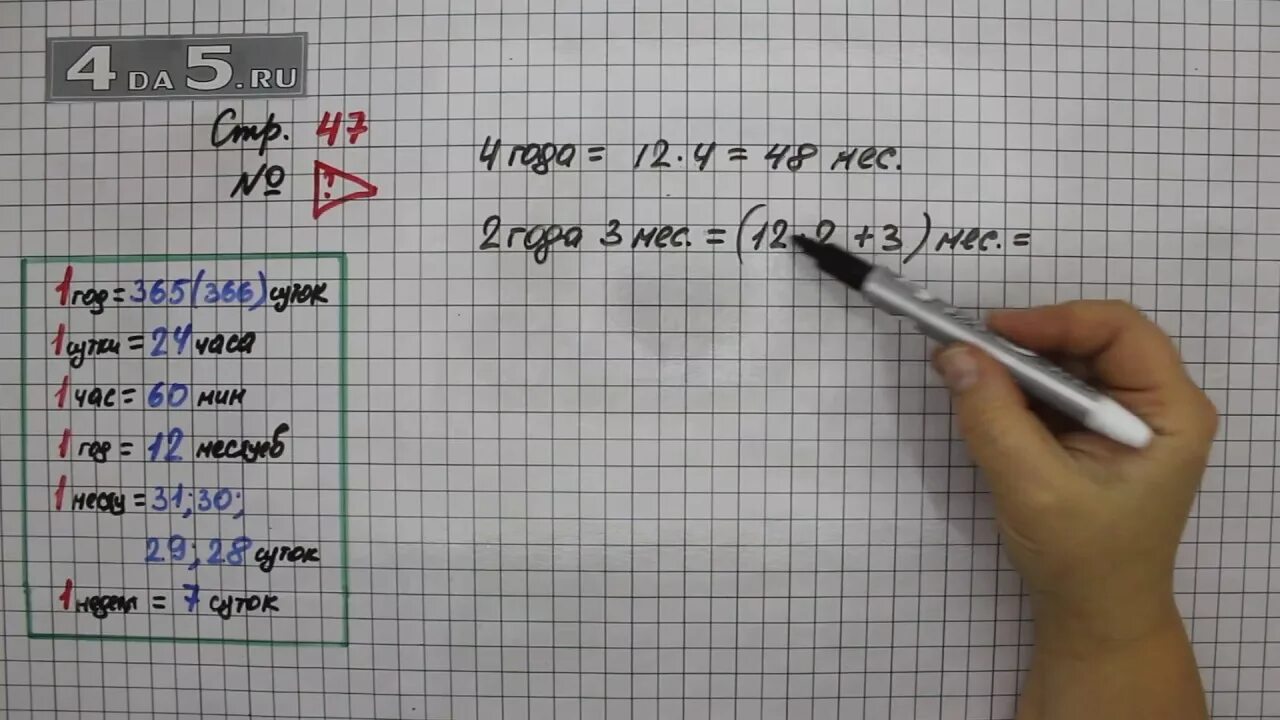 4 DA 5.RU
Стр. 47
№ !
4 года = 12 · 4 = 48 мес.
2 года 3 мес. = (12 · 2 + 3) мес. =
1 год = 365 (366) суток
1 сутки = 24 часа
1 час = 60 мин
1 год = 12 месяцев
1 месяц = 31; 30;
29; 28 суток
1 недел = 7 суток